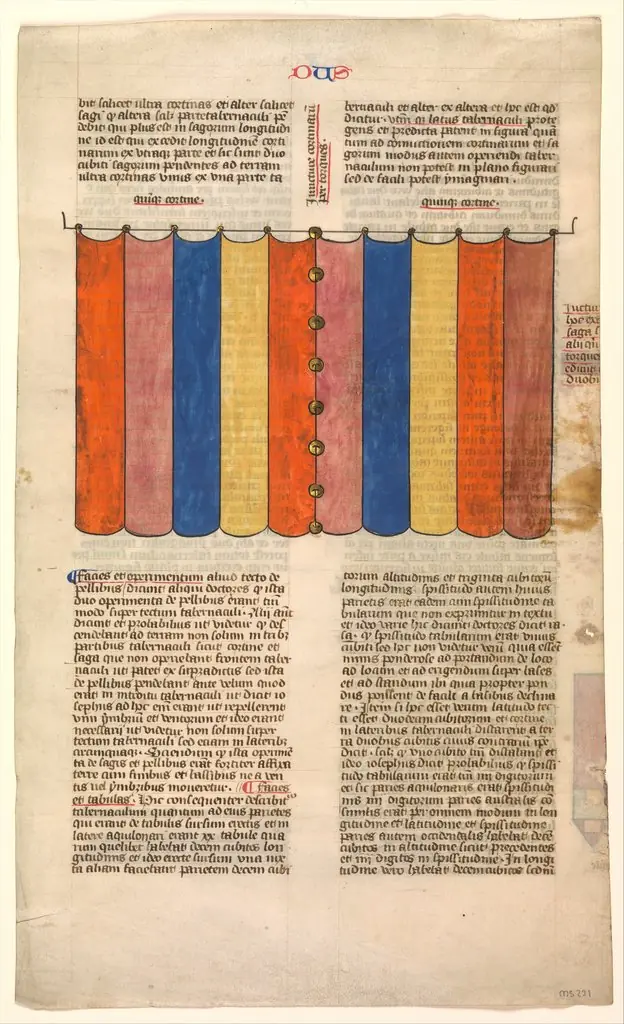 DUS
bit scilicet ultra cortinas et alter scilicet
sagi q altera sub parte tabernaculi pē
debit qui plus est in sagorum longitudi
ne id est qui excedit longitudinē corti
narum ex utraqȝ parte et sic sunt duo
cubiti sagorum pendentes ad terram
ultra cortinas unus ex una parte ta
quīqȝ cortine.
Iuncture cortinarū
per torques.
bernaculi et alter ex altera et hoc est qd
dicitur. utrū qȝ latus tabernaculi prote
gens et predicta patent in figura quā
tum ad coniunctionem cortinarum et sa
gorum modus autem operiendi taber
naculum non potest in plano figurari
sed de facili potest ymaginari.
quinqȝ cortine.
hoc
saga
torques
Facies et operimentum aliud tecto de
pellibus dicunt aliqui doctores qȝ ista
duo operimenta de pellibus erant tm̄
modo super tectum tabernaculi. Alii aūt
dicunt et probabilius ut videtur qȝ des
cendebant ad terram non solum in tribȝ
partibus tabernaculi sicut cortine et
saga que non operiebant frontem taber
naculi ut patet ex supradictis sed ista
de pellibus pendebant ante velum quod
erat in introitu tabernaculi ut dicit io
sephus ad hoc enim erant ut repellerent
vim ymbrium et ventorum et ideo erant
necessarii ut videtur non solum super
tectum tabernaculi sed etiam in lateribȝ
circumquaqȝ. Sciendum qȝ ista operimē
ta de sagis et pellibus erant fortiter affixa
terre cum funibus et
tis vel ymbribus moveretur. Facies
et tabulas. Hic consequenter describit
tabernaculum quantum ad eius parietes
qui erant de tabulis sursum erectis et in
latere aquilonari erant xx tabule qua
rum quelibet habebat decem cubitos lon
gitudinis et ideo erecte sursum una iux
ta aliam faciebant parietem decem cubi
torum altitudinis et triginta cubitorū
longitudinis spissitudo autem huius
parietis erat eadem cum spissitudine ta
bularum que non exprimitur in textu
et ideo varie hic dicunt doctores dicit ra
sa. qȝ spissitudo tabularum erat unius
cubiti sed hoc non videtur verū quia essēt
nimis ponderose ad portandum de loco
ad locum et ad erigendum super bases
et ad standum ibi quia propter pon
dus possent de facili a basibus declina
re. Item si hoc esset verum latitudo tec
ti esset duodecim cubitorum et cortine
in lateribus tabernaculi distarent a ter
ra duobus cubitis cuius contrariū ipe
dicit. scil. qȝ uno cubito tm̄ distabant et
ideo iosephus dicit probabilius qȝ spissi
tudo tabularum erat tm̄ iiii digitorum
et sic paries aquilonaris erat spissitudi
nis iiii digitorum paries australis cō
similis erat per omnem modum in lon
gitudine et latitudine et spissitudine
paries autem occidentalis habebat decē
cubitos in altitudine sicut precedentes
et iiii digitos in spissitudine. In longi
tudine vero habebat decem cubitos scdm
MS 291